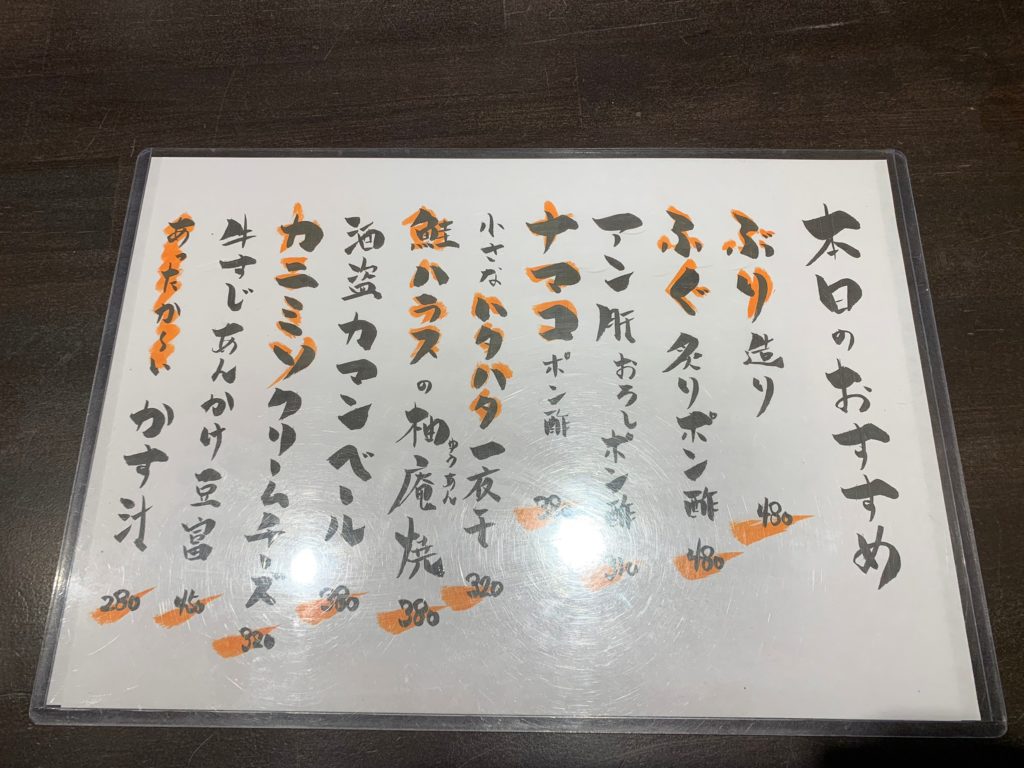 本日のおすすめ
ぶり造り 480
ふぐ炙りポン酢 480
アン肝おろしポン酢
ナマコポン酢 380
小さなハタハタ一夜干 320
鮭ハラスの柚庵焼 ゆうあん 380
酒盗カマンベール 380
カニミソクリームチーズ 320
牛すじあんかけ豆富 450
あったか〜い かす汁 280